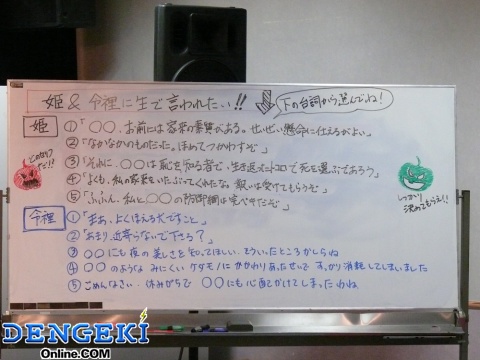 姫&令裡に生で言われたい!!
下の台詞から選んでね!
姫
①「〇〇、お前には家来の素質がある。せいぜい懸命に仕えるがよい」
②「なかなかのものだった。ほめてつかわすぞ」
③「それに、〇〇は恥を知る者で、生き返ったトコロで死を選ぶであろう」
④「よくも、私の家来をいたぶってくれたな。報いは受けてもらうぞ」
⑤「ふふん、私と〇〇の防御網は完ペキだぞ」
令裡
①「まあ、よくほえる犬ですこと」
②「あまり、近寄らないで下さる?」
③ 〇〇にも夜の美しさを知ってほしい、そういったところかしらね
④ 〇〇のような みにくい ケダモノに かかわりあったせいで すっかり消耗してしまいました
⑤ ごめんなさい、休みがちで 〇〇にも心配かけてしまったわね
しっかり
決めてもらえ!!
DENGEKI
Online.COM